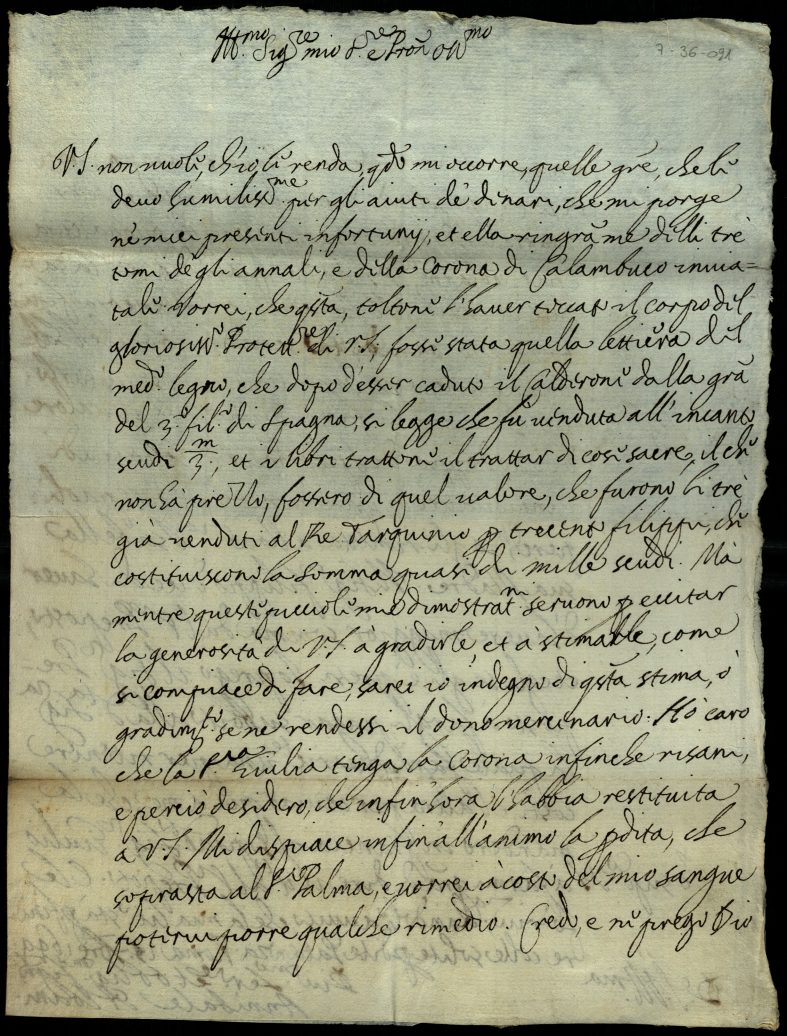 Ill.mo Sig.re mio S.re e Pron Oss.mo
7-36-091
V.S. non vuole, ch'io li renda, qdo mi occorre, quelle gre, che li
devo humiliss.me per gli aiuti de denari, che mi porge
ne miei presenti infortunij, et ella ringra me delli trè
tomi de gli annali, e della Corona di Calambuco invia=
tali. Vorrei, che qsta, toltone l'haver toccato il corpo del
gloriosiss.o Protett.re di V.S. fosse stata quella lettiera del
med.o legno, che dopo d'esser caduto il Calderone dalla gra
del 3.o fil.o di Spagna, si legge che fù venduta all'incanto
scudi m/3, et i libri trattone il trattar di cose sacre, il che
non hà prezzo, fossero di quel valore, che furono li trè
già venduti al Re Tarquinio p trecento filippi, che
costituiscono la somma quasi di mille scudi. Mà
mentre queste picciole mie dimostrat.ni servono p eccitar
la generosità di V.S. à gradirle et à stimarle, come
si compiace di fare, sarei io indegno di qsta stima, ò
gradim.to se ne rendessi il dono mercenario. Hò caro
che la S.ra Giulia tenga la Corona infinche risani,
e perciò desidero, che infin'hora l'habbia restituita
à V.S. Mi dispiace infin'all'animo la pdita, che
soprasta al S.r Palma, e vorrei à costo del mio sangue
potervi porre qualche rimedio. Credo, e ne prego Dio